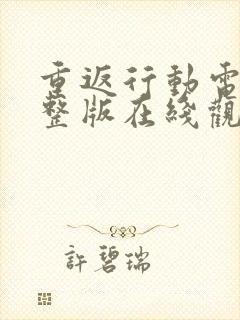 重返行動電
整版在綫觀
許碧瑞